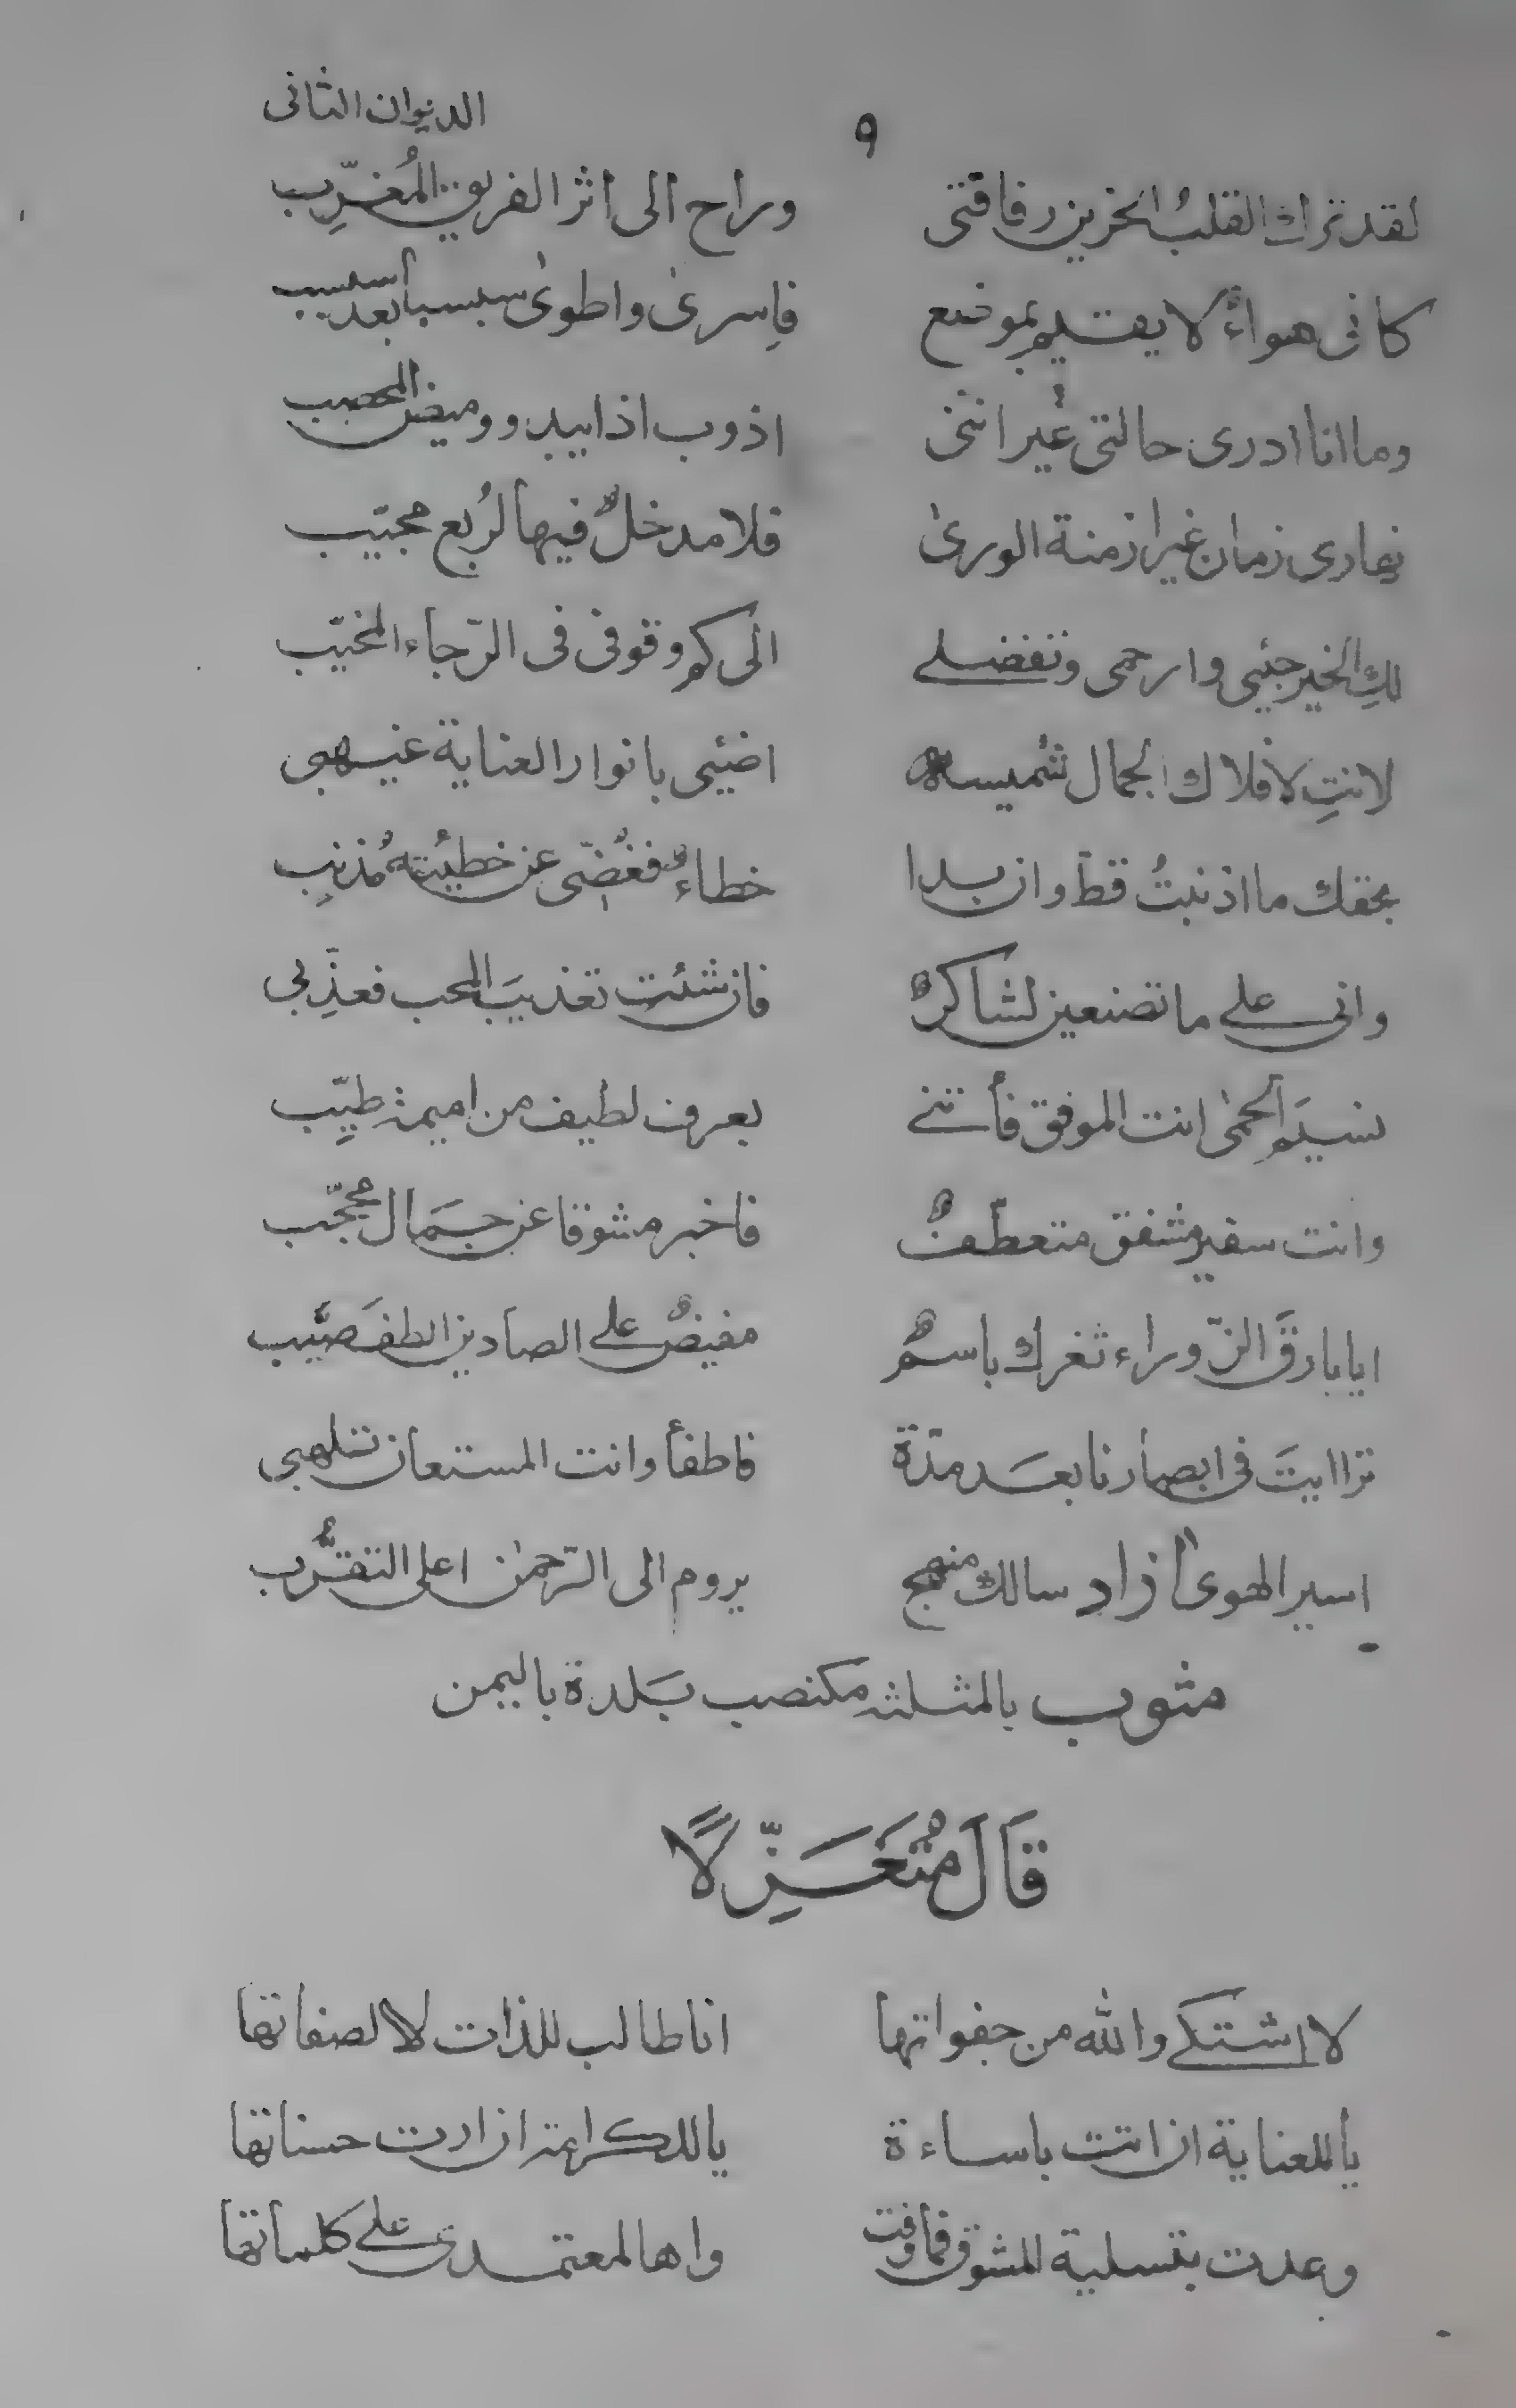 الديوان الثانى
٩
لقد ترك القلبُ الحزين رفاقتى وراح الى اثر الفريق المُغرِّب
كانى هواءٌ لا يقيم بموضع فاسرى واطوى سبسبا بعد سبسب
وما انا ادرى حالتى غير اننى اذوب اذا يبدو وميض المحصب
نهارى زمان غير ازمنة الورى فلا مدخلٌ فيها لرُبع مجيّب
لكِ الخير جيئى وارحمى وتفضلے الى كم وقوفى فى الرّجاء المخيّب
لانتِ لافلاك الجمال شميسة اضيئى بانوار العناية غيهبى
بحقك ما اذنبتُ قط وان بدا خطاءٌ فغُضّى عن خطيئة مُذنبِ
وانى علے ما تصنعين لشاكرٌ فان شئت تعذيبَ المحب فعذّبى
نسيمَ الحمىٰ انت الموفق فأتنے بعرف لطيف من اميمة طيّبِ
وانت سفير مشفق متعطّفٌ فاخبر مشوقا عن جمال محجّب
ايا بارقَ الزّوراء ثغرك باسمٌ مفيضٌ علے الصادين الطفَ صيّب
تراايتَ فى ابصارنا بعد مدّة فاطفأ وانت المستعان تلهبى
اسير الهوى آزاد سالك منهج يروم الى الرّحمٰن اعلى التقرُّب
مثوب بالمثلثة مكنصب بَلدة باليمن
قَالَ مُتَغَزِّلًا
لا اشتكے والله من جفواتها انا طالب للذات لا لصفاتها
يا للعناية ان اتت باساءة يا للكرامة ان ارت حسناتها
وعدت بتسلية المشوق فما وفت واها لمعتمدى علے كلماتها